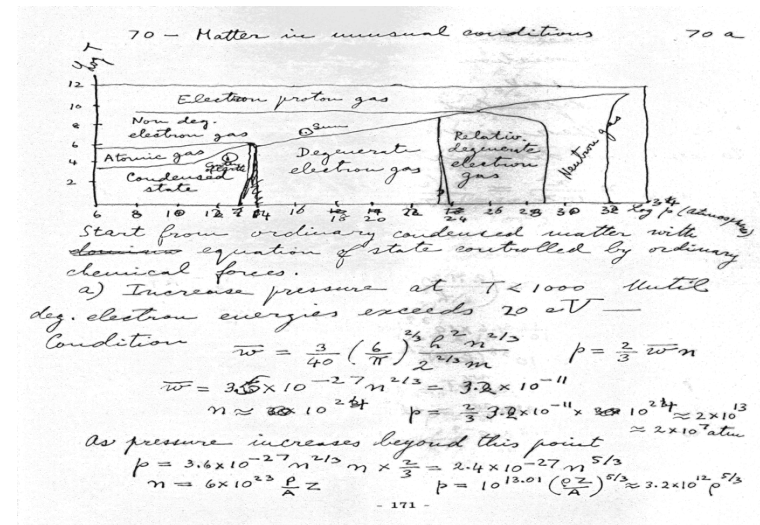 70 - Matter in unusual conditions 70 a
log T
12
10
8
6
4
2
Electron proton gas
Non deg.
electron gas
Atomic gas
Condensed
state
Sun
Degenerate
electron gas
Relativ.
degenerate
electron
gas
Neutron gas
6 8 10 12 14 16 18 20 22 24 26 28 30 32 log p (atmospheres)
Start from ordinary condensed matter with
equation of state controlled by ordinary
chemical forces.
a) Increase pressure at T < 1000 Until
deg. electron energies exceeds 20 eV —
Condition w̄ = 3/40 (6/π)^2/3 h² n^2/3 / 2^2/3 m p = 2/3 w̄ n
w̄ = 3.6 × 10^-27 n^2/3 = 3.2 × 10^-11
n ≈ 10^24 p = 2/3 3.2×10^-11 × 10^24 ≈ 2×10^13
≈ 2×10^7 atm
As pressure increases beyond this point
p = 3.6×10^-27 n^2/3 n × 2/3 = 2.4×10^-27 n^5/3
n = 6×10^23 ρ/A Z p = 10^13.01 (ρZ/A)^5/3 ≈ 3.2×10^12 ρ^5/3
- 171 -